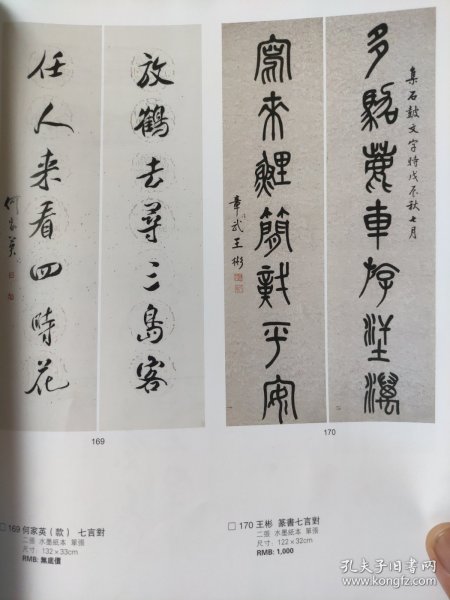 放鶴去尋三島客
任人来看四時花
何家英
169
集石鼓文字時戊辰秋七月
多 車
寫來鯉簡 平安
章武王彬
170
169 何家英（款） 七言對
二張 水墨紙本 單張
尺寸：132×33cm
RMB: 無底價
170 王彬 篆書七言對
二張 水墨紙本 單張
尺寸：122×32cm
RMB: 1,000
孔夫子旧书网